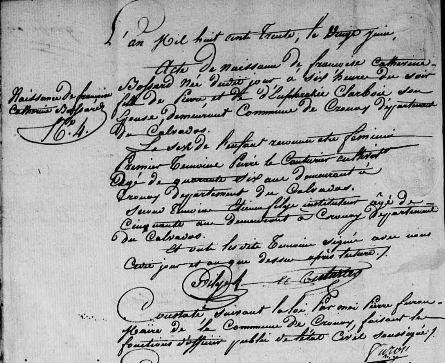 L'an Mil huit cent Trente, le juin,
Acte de Naissance de francoise Catherine
Bossard Née dudit jour à six heure de soir
fille de Pierre et de d'Euphrasie son
Epouse demeurant Commune de Crouay département
du Calvados.
Le sexe de l'enfant reconnu été féminin
Premier Temoins Pierre le Couturier
âgé de quarante six ans demeurant à
Crouay Département du Calvados.
Second Temoins instituteur âgé de
Cinquante ans demeurant à Crouay Département
du Calvados.
Et ont les dits Temoins signé avec nous
Cedit jour et an que dessus après lecture /.
Constaté suivant la loi Par moi Pierre
Maire de la Commune de Crouay, faisant les
fonctions d'officier public de l'état Civil soussigné /.
Naissance de françoise
Catherine Bossard
N° 4.